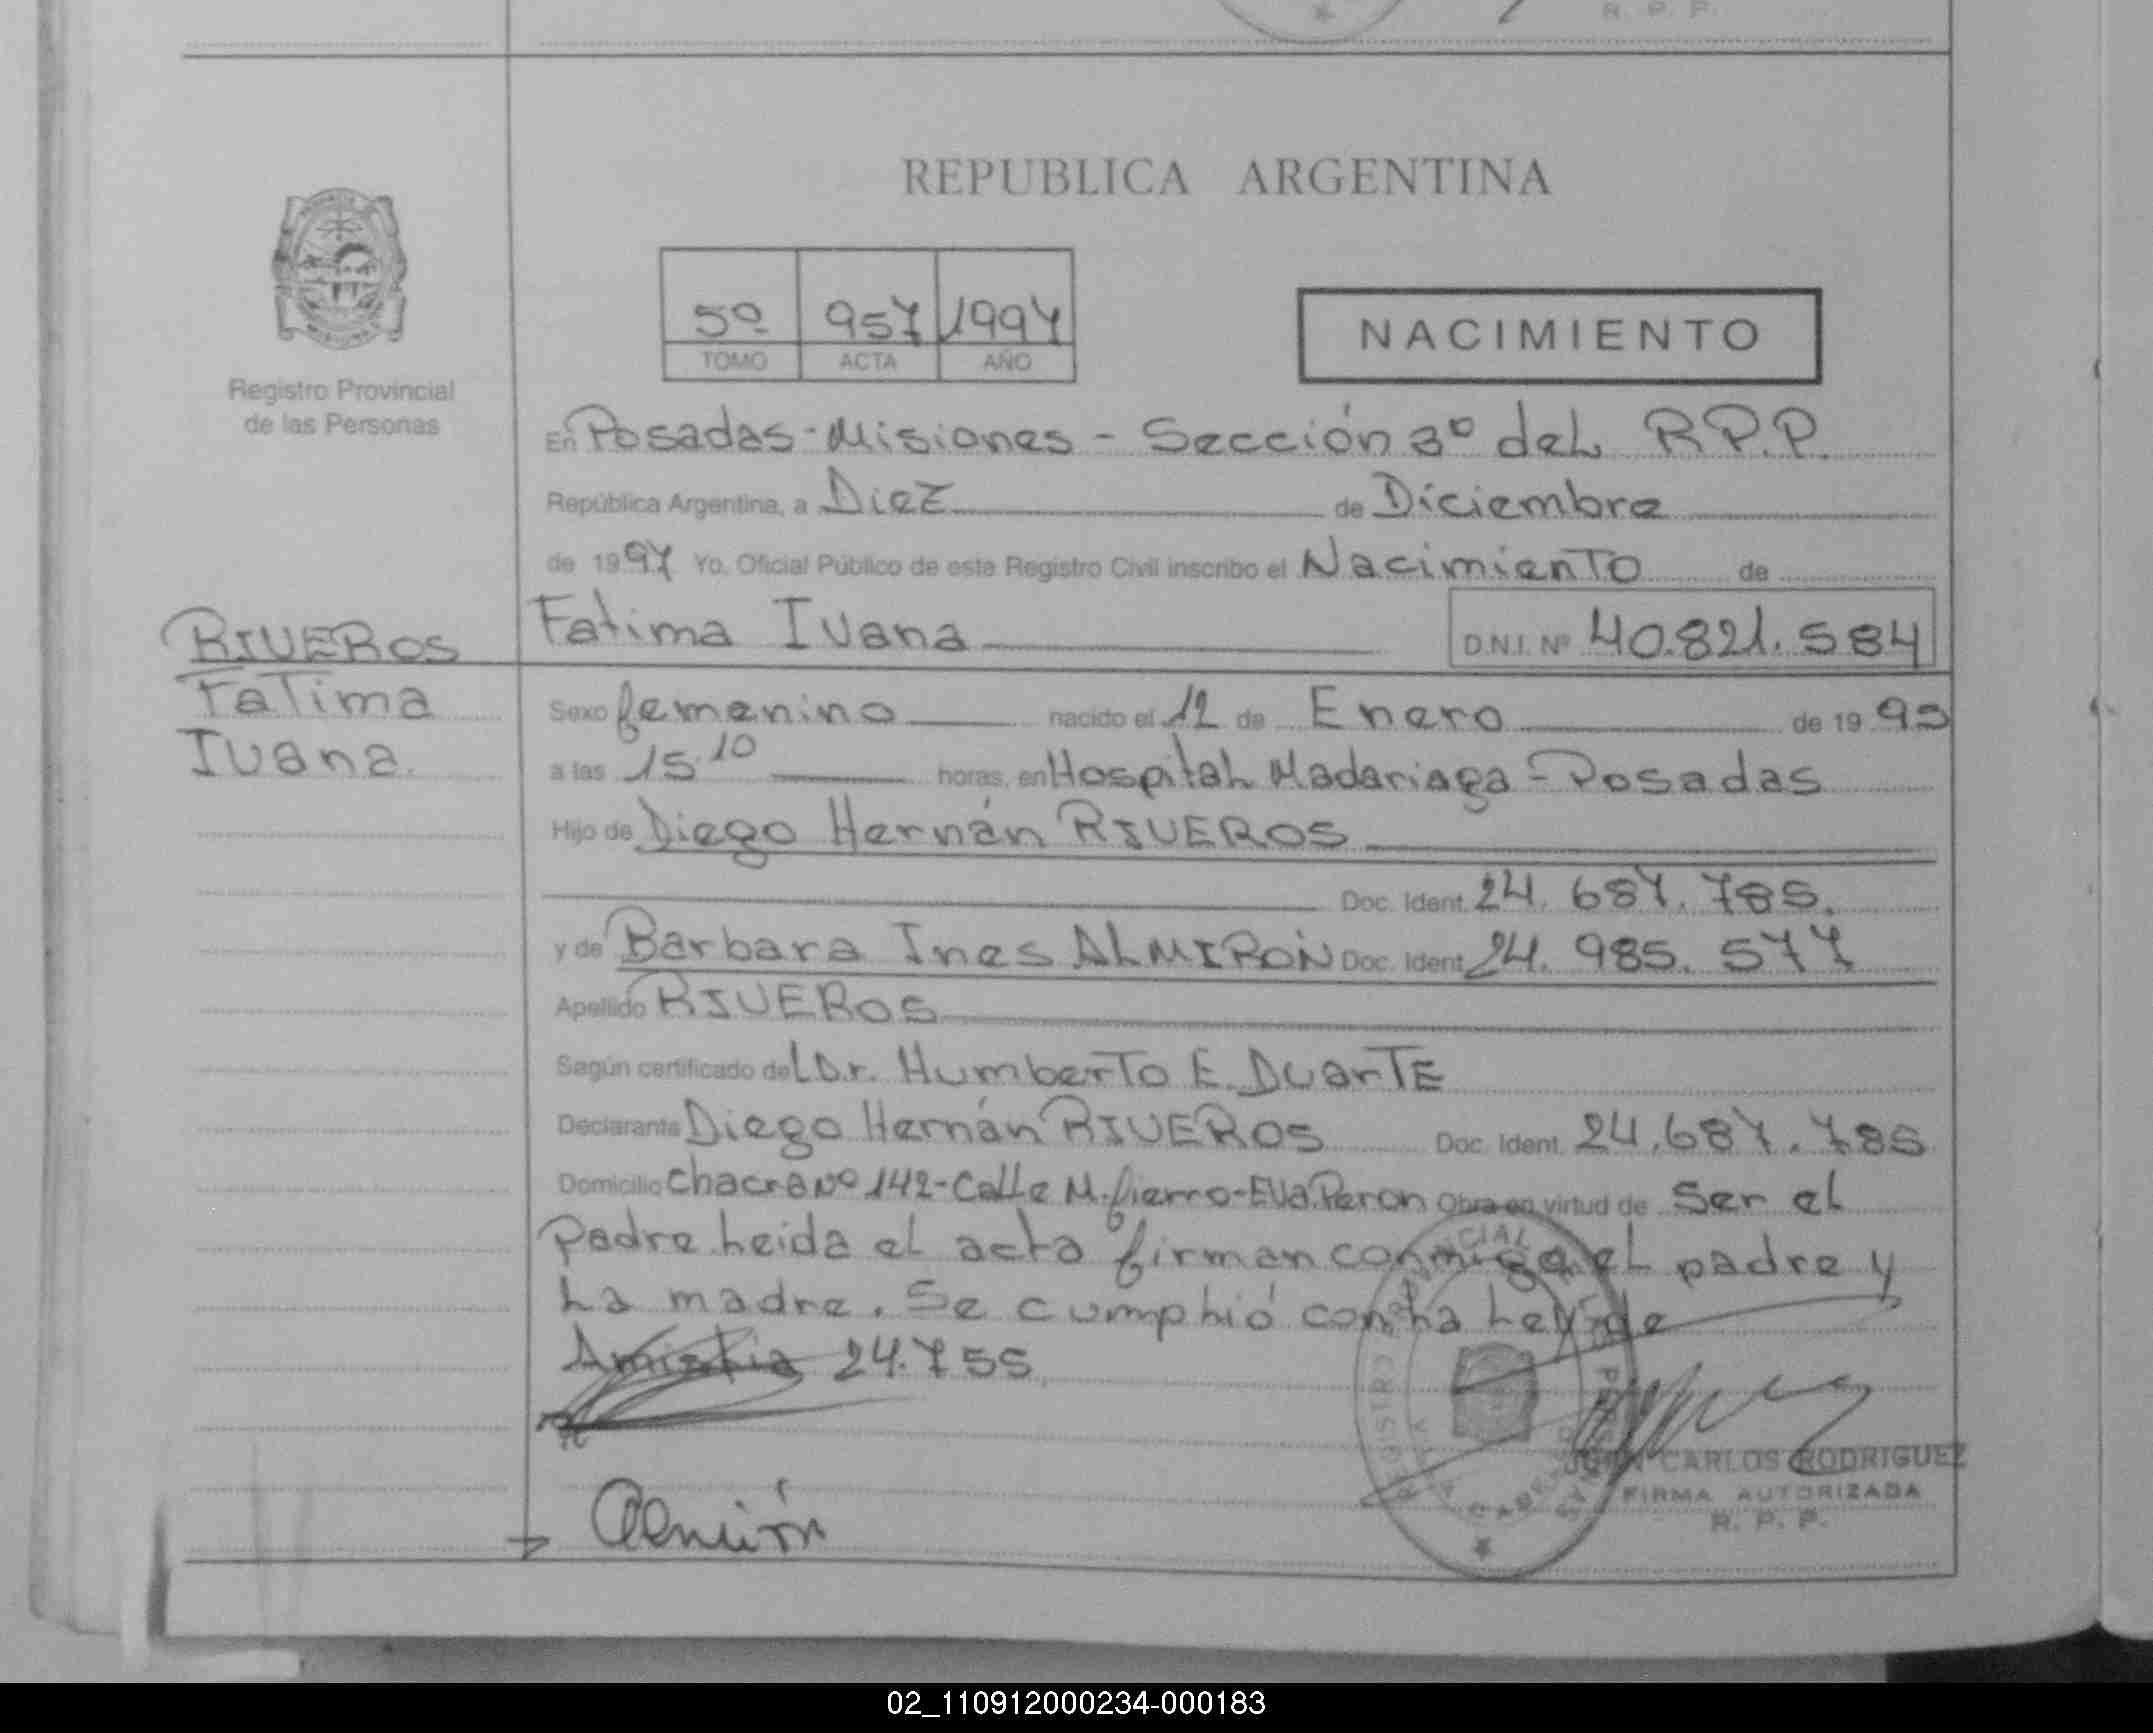 R. P. P.
REPUBLICA ARGENTINA
5º 957 1997
TOMO ACTA AÑO
NACIMIENTO
Registro Provincial
de las Personas
En Posadas-Misiones - Sección 3º del R.P.P.
República Argentina, a Diez de Diciembre
de 1997 Yo, Oficial Público de este Registro Civil inscribo el Nacimiento de
Fatima Ivana D.N.I. Nº 40.821.584
RIVEROS
Fatima
Ivana.
Sexo femenino nacido el 12 de Enero de 19
a las 15.10 horas, en Hospital Madariaga - Posadas
Hijo de Diego Hernán RIVEROS
Doc. Ident. 24.687.785.
y de Barbara Ines ALMIRÓN Doc. Ident. 24.985.577
Apellido RIVEROS
Según certificado del Dr. Humberto E. DuarTE
Declarante Diego Hernán RIVEROS Doc. Ident. 24.687.785
Domicilio Chacra Nº 142-Calle M.fierro-Eva.Peron Obra en virtud de Ser el
padre. Leida el acta firman conmigo el padre y
La madre. Se cumplió con la Ley de
Amistia 24.755
Almirón
REGISTRO PROVINCIAL
JUAN CARLOS RODRIGUEZ
FIRMA AUTORIZADA
R. P. P.
02_110912000234-000183